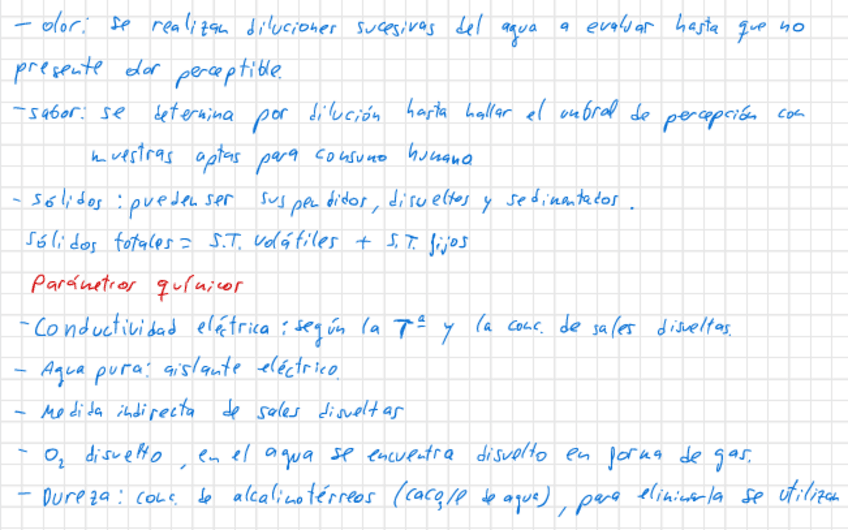 - olor: se realizan diluciones sucesivas del agua a evaluar hasta que no
presente olor perceptible.
- sabor: se determina por dilución hasta hallar el umbral de percepción con
muestras aptas para consumo humano
- sólidos: pueden ser suspendidos, disueltos y sedimentados.
sólidos totales = S.T. volátiles + S.T. fijos
Parámetros químicos
- Conductividad eléctrica: según la Tª y la conc. de sales disueltas.
- Agua pura: aislante eléctrico.
- Medida indirecta de sales disueltas
- O₂ disuelto, en el agua se encuentra disuelto en forma de gas.
- Dureza: conc. de alcalinotérreos (CaCO₃/l de agua), para eliminarla se utilizan